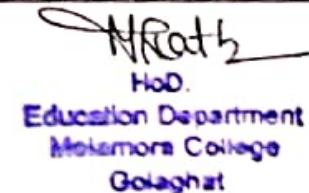 HoD.
Education Department
Melamora College
Golaghat